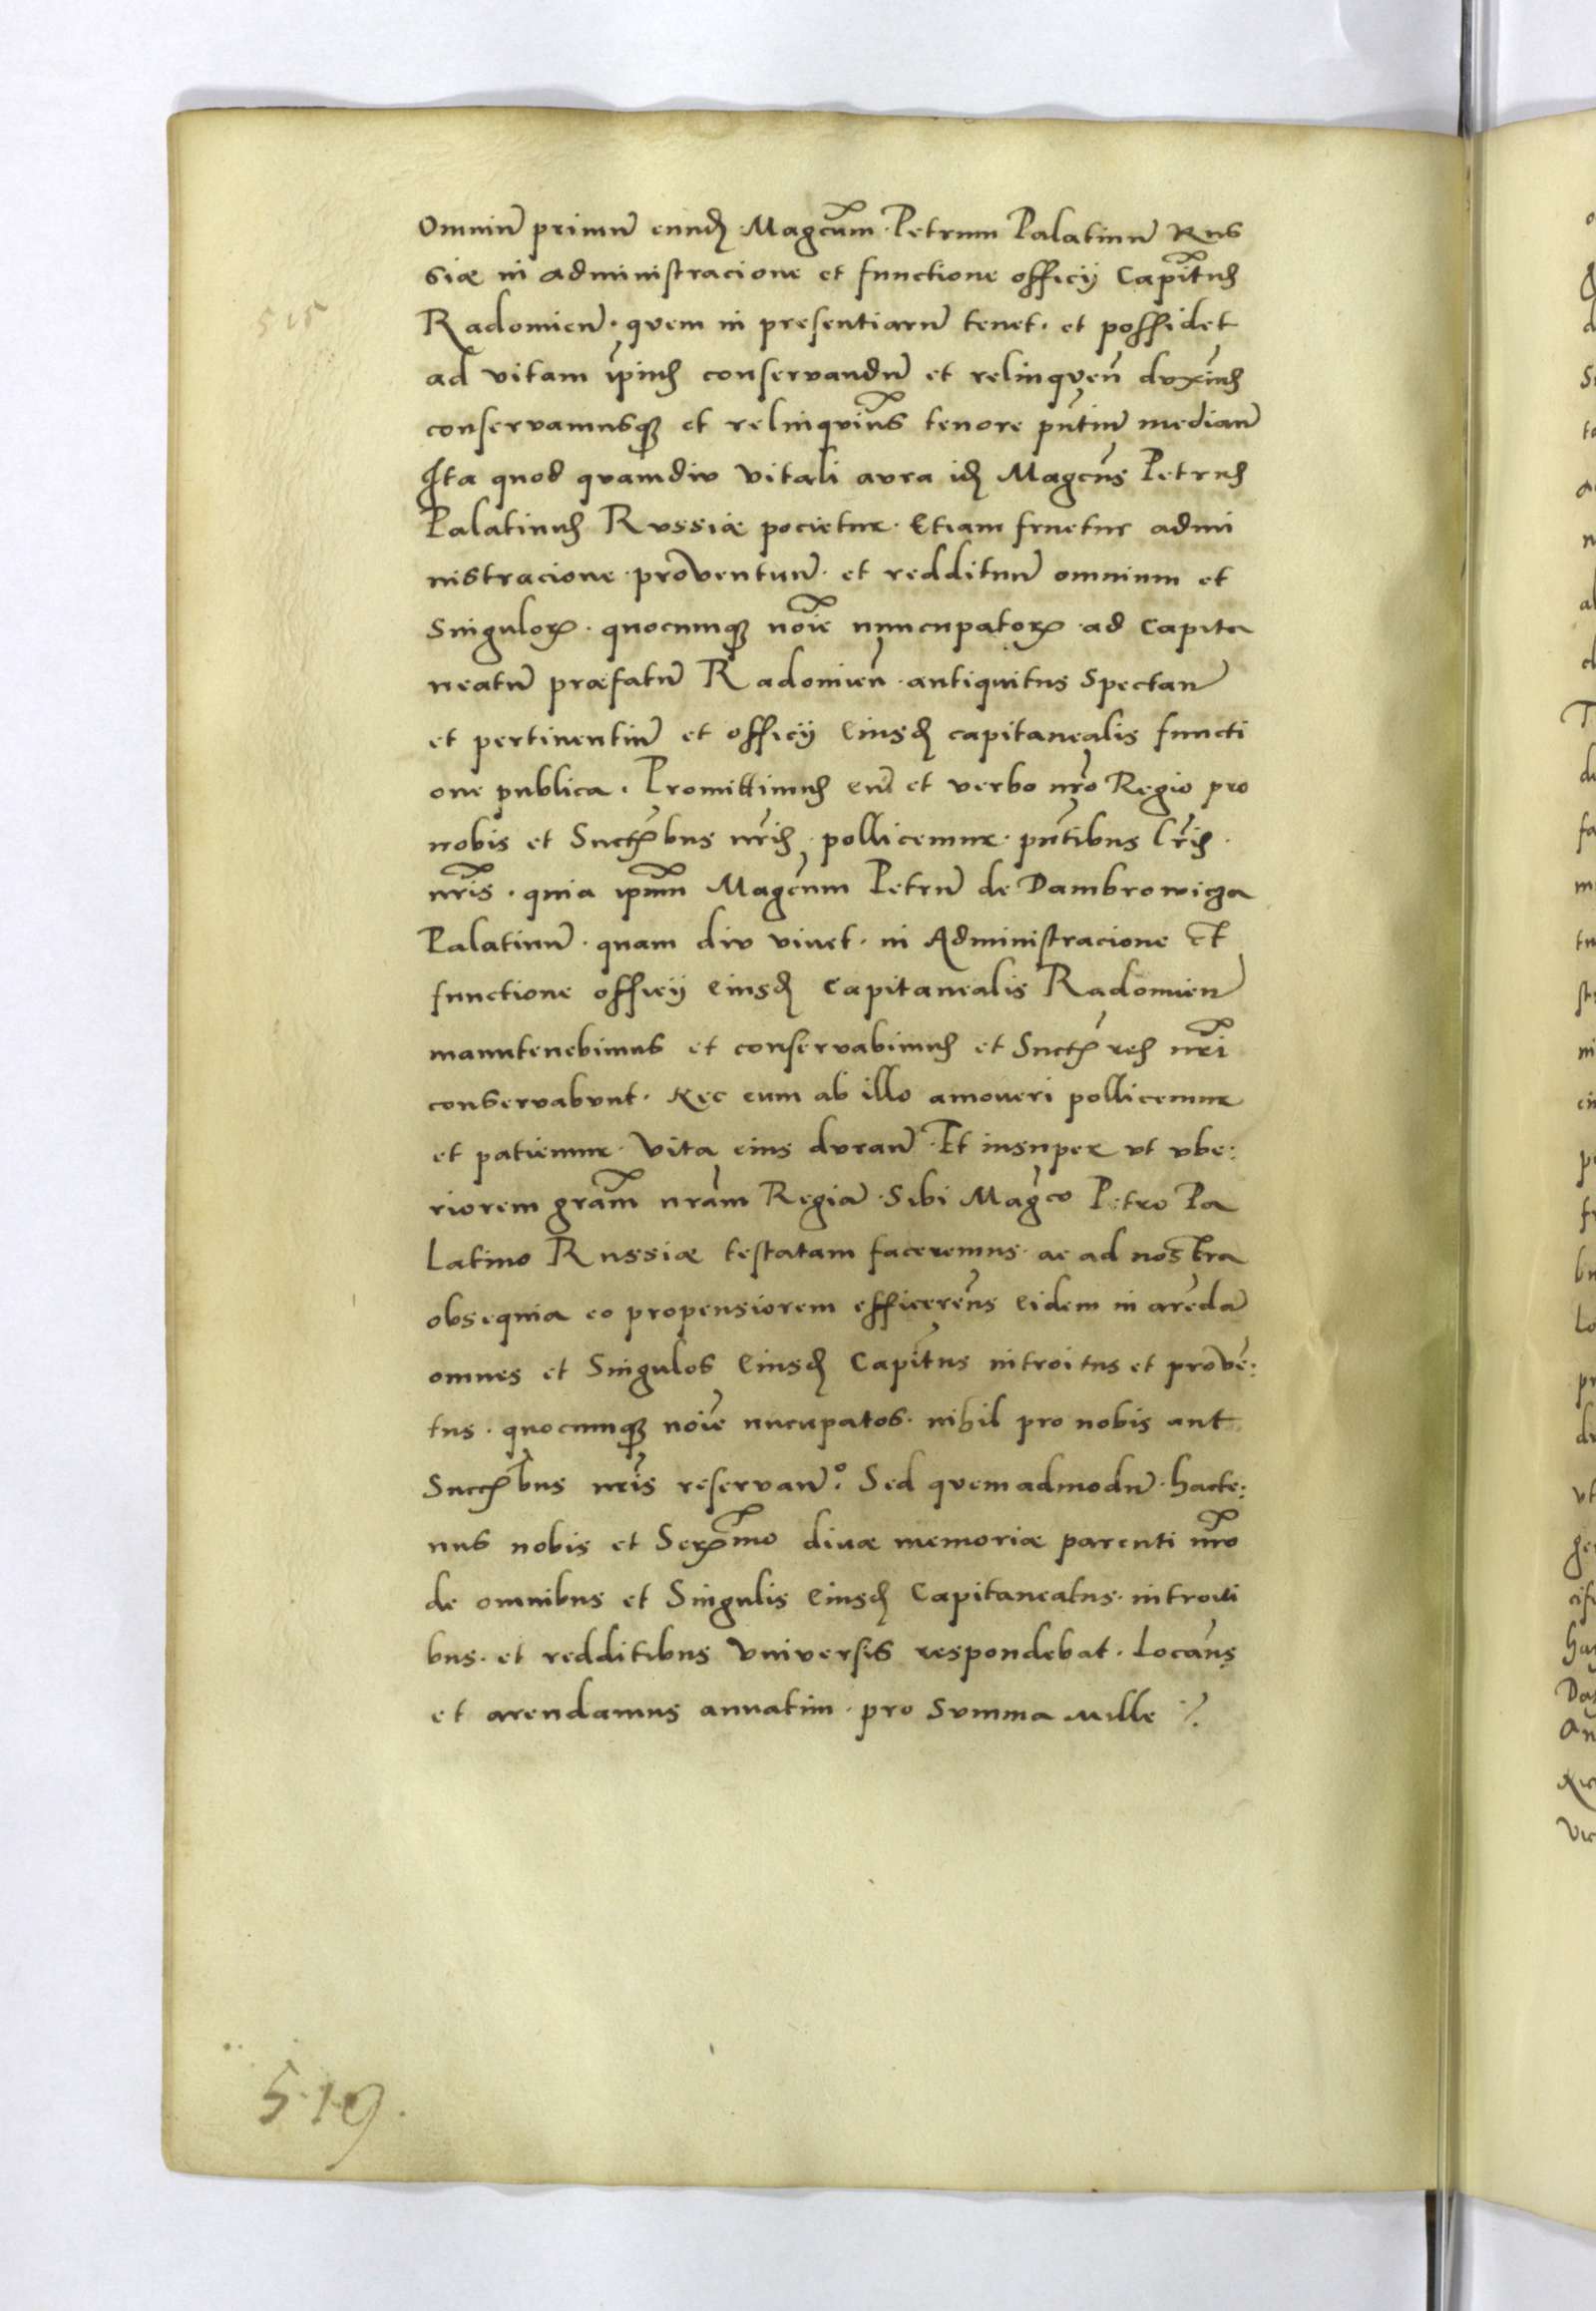 Omniū primū eundē Magcum Petrum Palatinū Rus
siæ in administracione et functione officij Capitūs
515
Radomien̄ · quem in presentiarū tenet · et possidet
ad vitam ip̄ius conservandū et relinquen̄ duxim̄us
conservamusq₃ et relinquim̄s tenore pn̄tiū median̄
Ita quod quamdiu vitali aura idē Magcūs Petrus
Palatinus Russiæ pocietur · Etiam fruetur admi
nistracione · proventuū · et reddituū omnium et
Singuloꝝ · quocumq₃ noīe nuncupatoꝝ · ad Capita
neatū præfatū Radomien̄ · antiquitus Spectan̄
et pertinentiū et officij Eiusdē capitanealis functi
one publica · Promittimus eni̅ et verbo nr̄o Regio pro
nobis et Succꝝbus nr̄is · pollicemur · pn̄tibus Lr̄is ·
nr̄is · quia ipsum̄ Magcūm Petrū de Dambrowicza
Palatinū · quam diu vivet · in Administracione Et
functione officij Eiusdē Capitanealis Radomien̄
manutenebimus et conservabimus et Succꝝres nr̄i
conservabunt · Nec eum ab illo amoveri pollicemur
et patiemur · Vita eius duran̄ · Et insuper ut ube:
riorem gram̄ nram̄ Regiā · Sibi Magco Petro Pa
latino Russiæ testatam faceremus · ac ad nostra
obsequia eo propensiorem efficerem̄s Eidem in arendā
omnes et Singulos Eiusdē Capitn̄us introitus et prove̅:
tus · quocumq₃ noīe nucupatos · nihil pro nobis aut
Succꝝbus nr̄is reservan̄ · Sed quemadmodū · hacte:
nus nobis et Serꝝmo divæ memoriæ parenti nr̄o
de omnibus et Singulis Eiusdē Capitaneatus · introiti
bus · et redditibus Universis respondebat · Locam̄s
et arendamus annatim · pro Summa Mille
5·19·